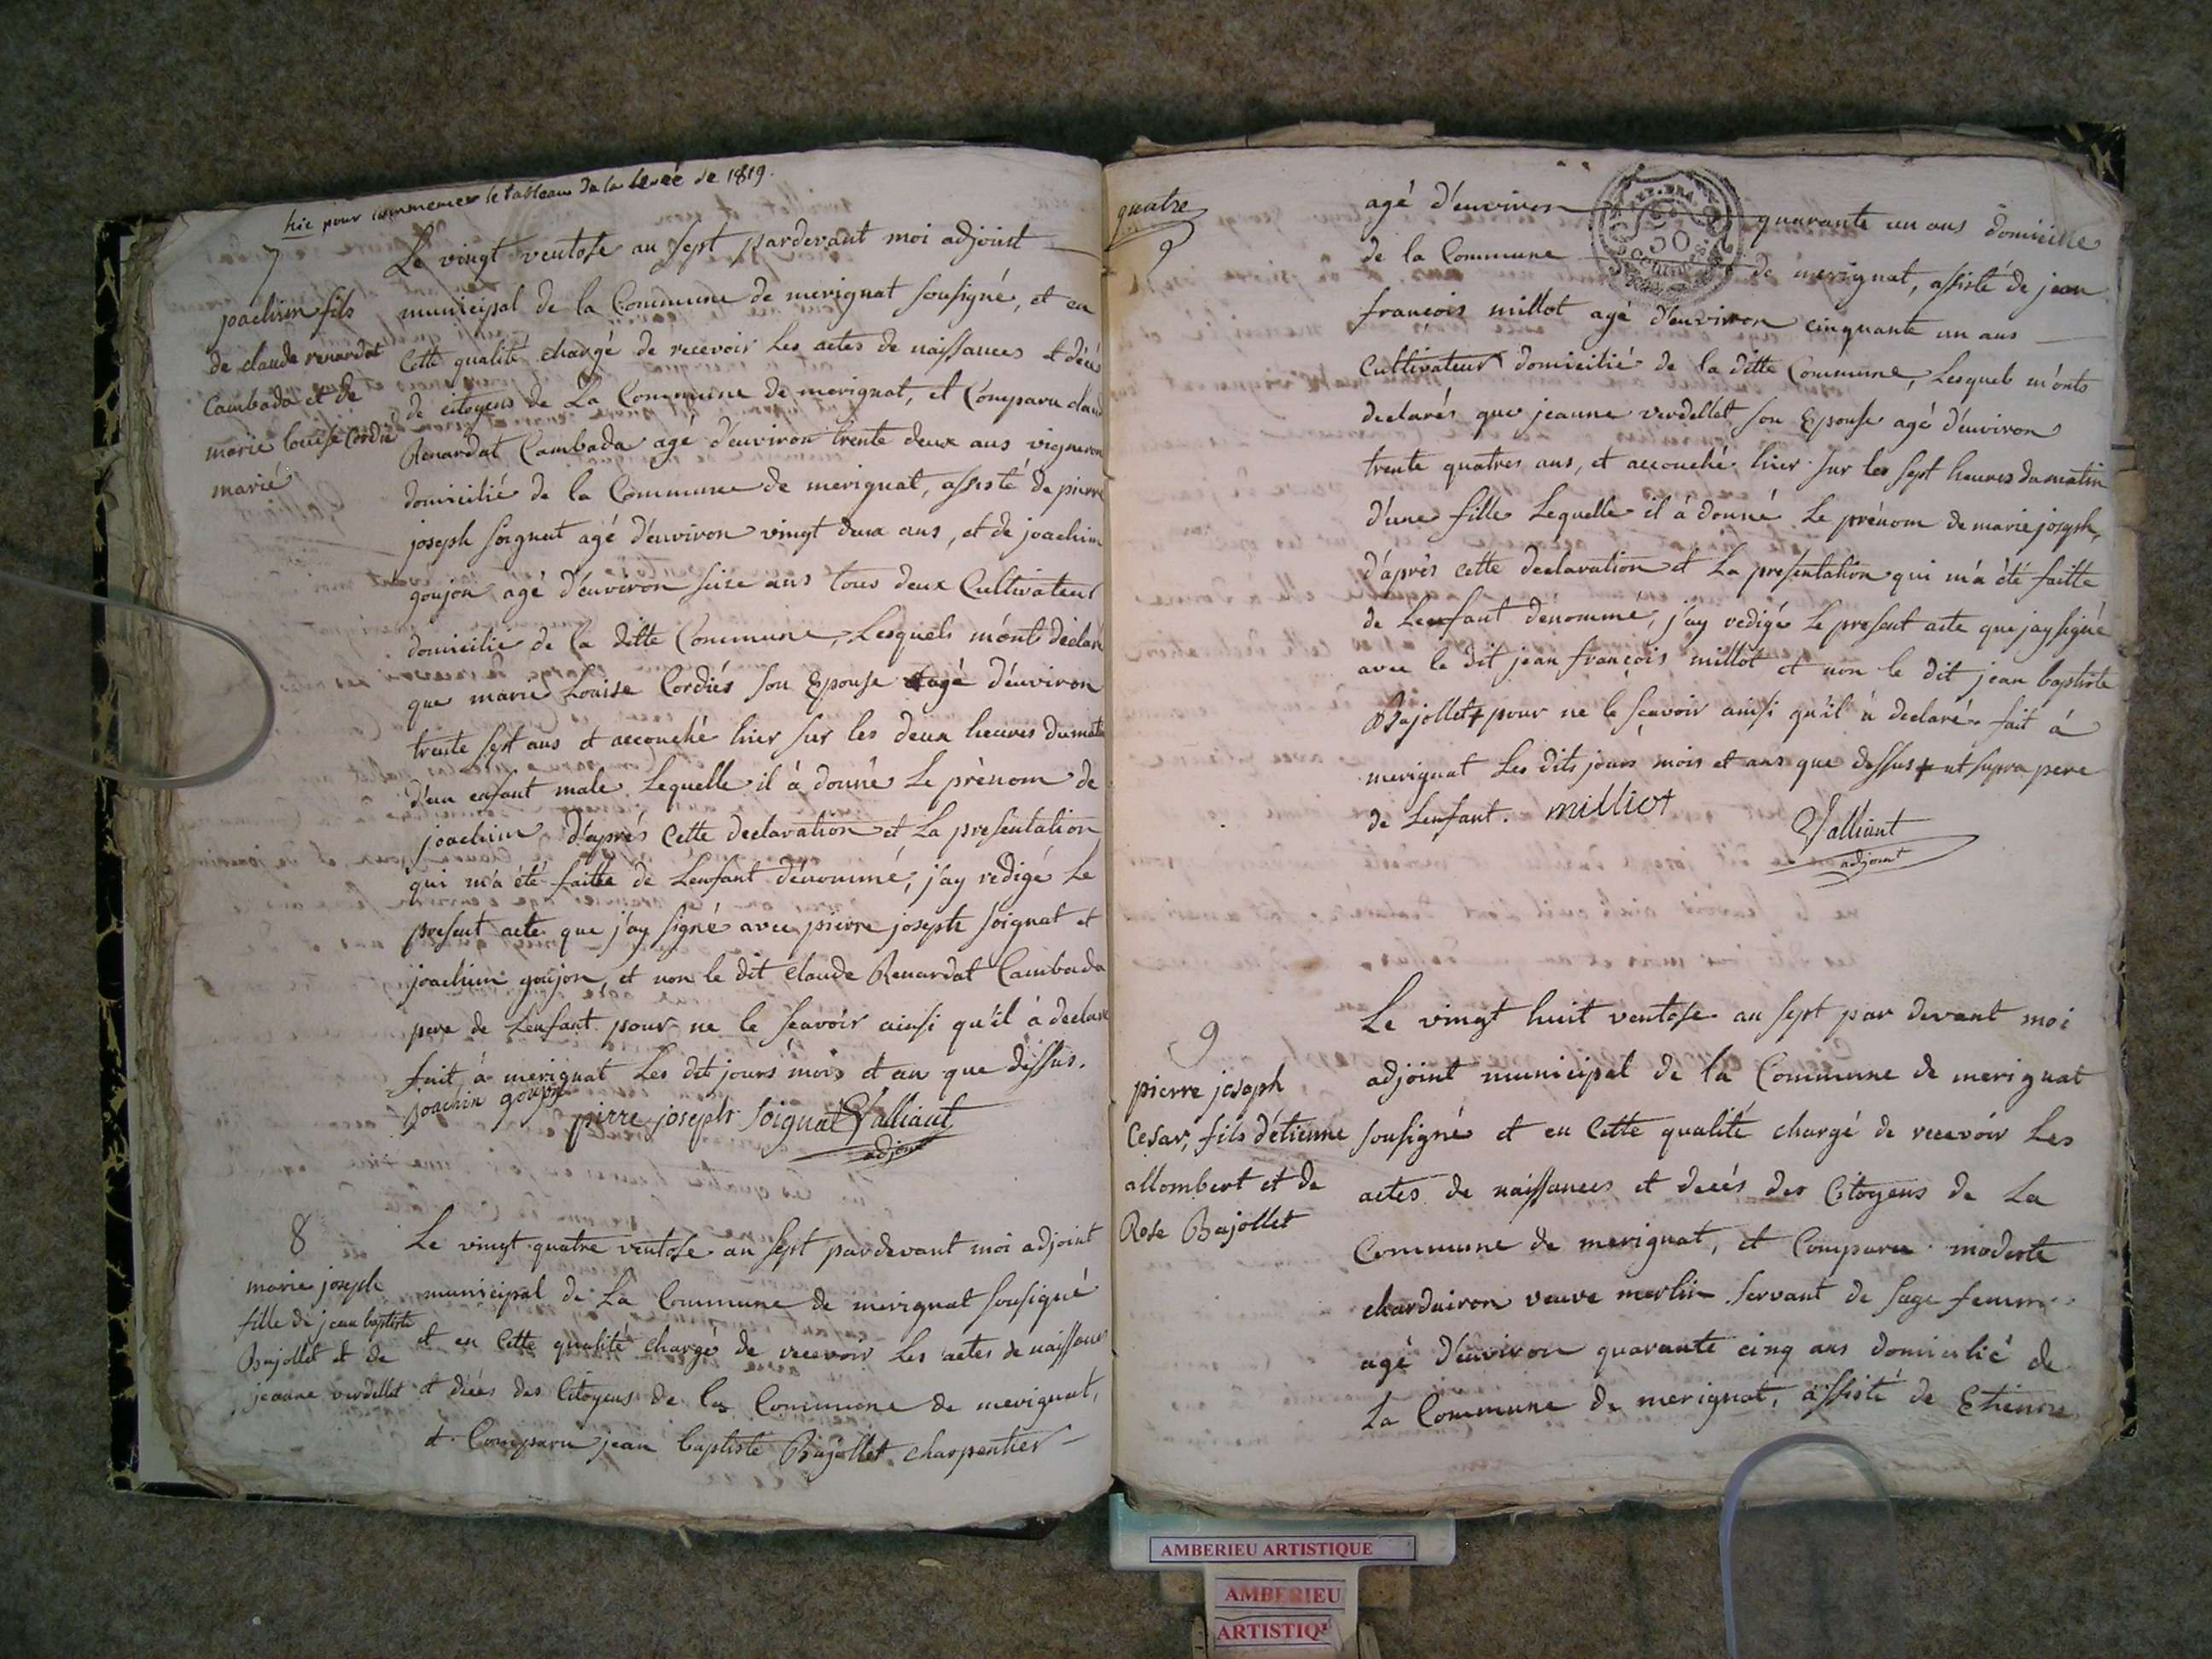 hic pour commencer le tableau de la levée de 1819.
7
joachim fils
de claude renardat
Cambada et de
marie louise Cordié
marié
Le vingt ventose an sept pardevant moi adjoint
municipal de la Commune de merignat sousigné, et en
Cette qualité chargé de recevoir Les actes de naissances et décé
de citoyens de La Commune de merignat, et Comparu claud
Renardat Cambada agé d'environ trente deux ans vigneron
domicilié de la Commune de merignat, assisté de pierre
joseph soignat agé d'environ vingt deux ans, et de joachim
goujon agé d'environ seize ans tous deux Cultivateur
domicilié de la ditte Commune, Lesquels m'ont déclaré
que marie Louise Cordiés son Epouse agé d'environ
trente sept ans et accouché hier sur les deux heures du matin
d'un enfant male Lequelle il à donné Le prénom de
joachim d'aprés Cette declaration et La presentation
qui m'a été faitte de Lenfant dénommé, j'ay redigé Le
present acte que j'ay signé avec pierre joseph soignat et
joachim goujon, et non le dit claude Renardat Cambada
pere de Lenfant pour ne le sçavoir ainsi qu'il à declaré
fait à merignat Les dit jours mois et an que dessus.
joachin goujon
pirre joseph soignat Valliant
adjoint
8
marie joseph
fille de jean baptiste
Bajollet et de
jeanne verdellet
Le vingt quatre ventose an sept pardevant moi adjoint
municipal de La Commune de merignat sousigné
et en Cette qualité chargé de recevoir Les actes de naissances
et décés des Citoyens de la Commune de merignat,
et Comparu jean baptiste Bajollet charpentier
quatre
9
agé d'environ quarante un ans domicilié
de la Commune de merignat, assisté de jean
françois millot agé d'environ cinquante un ans
Cultivateur domicilié de la ditte Commune, Lesquels m'onts
declarés que jeanne verdellet son Epouse agé d'environ
trente quatres ans, et accouché hier sur les sept heures du matin
d'une fille Lequelle il à donné Le prénom de marie joseph,
d'après cette declaration et La presentation qui m'a été faitte
de Lenfant dénommé, j'ay redigé Le present acte que jay signé
avec le dit jean françois millot et non le dit jean baptiste
Bajollet + pour ne le sçavoir ainsi qu'il à declaré fait à
merignat Les dits jours mois et ans que dessus + ut supra pere
de Lenfant. milliot
Valliant
adjoint
9
pierre joseph
Cesar, fils d'étienne
allombert et de
Rose Bajollet
Le vingt huit ventose an sept par devant moi
adjoint municipal de la Commune de merignat
sousigné et en Cette qualité chargé de recevoir Les
actes de naissances et decés des Citoyens de La
Commune de merignat, et Comparue modeste
chardairon veuve merlin servant de sage femme
agé d'environ quarante cinq ans domicilié de
La Commune de merignat, assisté de Etienne
AMBERIEU ARTISTIQUE
AMBERIEU
ARTISTIQ